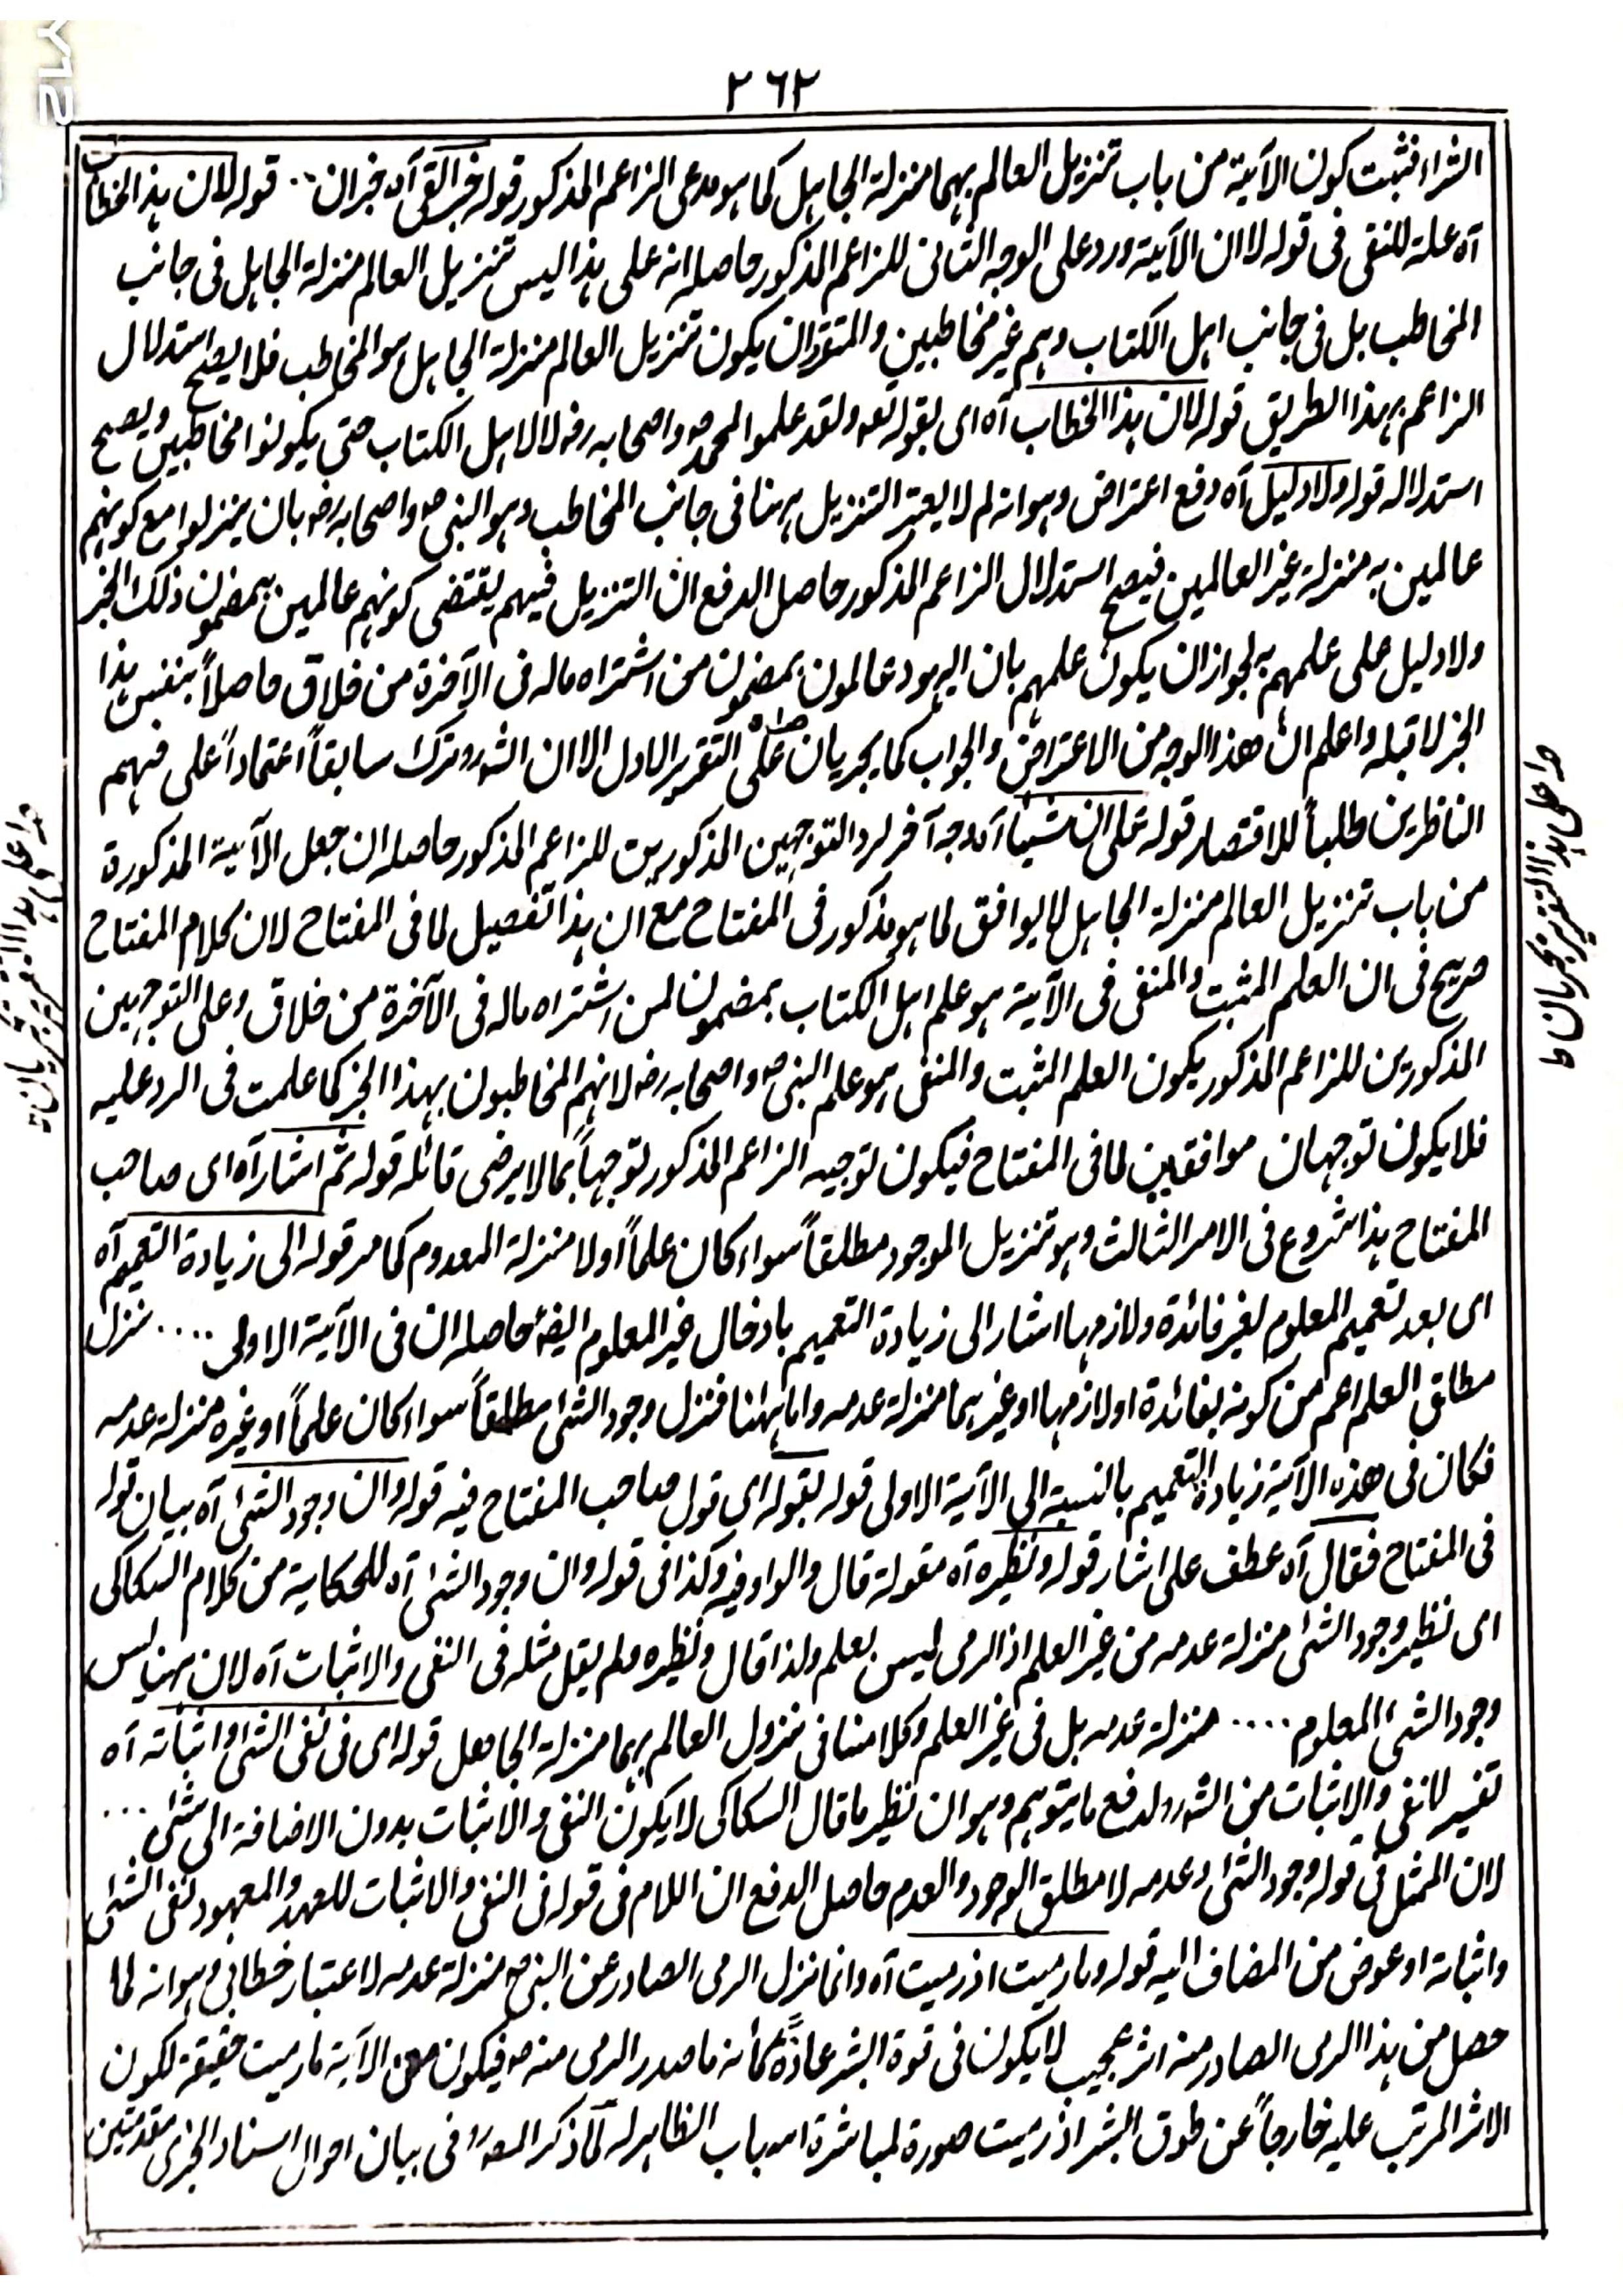 ٢٦٢
الشراء فثبت كون الآية من باب تنزيل العالم بهما منزلة الجاهل كما هو مدعى الزاعم المذكور قوله خبر القى آه خبر ان ·· قوله لان هذا الخطاب
آه علة للنفى فى قوله لا ان الآية ورد على الوجه الثانى للزاعم المذكور حاصله انه على هذا ليس تنزيل العالم منزلة الجاهل فى جانب
المخاطب بل فى جانب اهل الكتاب وهم غير مخاطبين والمتقرر ان يكون تنزيل العالم منزلة الجاهل هو المخاطب فلا يصح استدلال
الزاعم بهذا الطريق قوله لان هذا الخطاب آه اى بقوله تعه ولقد علموا لمحمد ص واصحابه رض لا لاهل الكتاب حتى يكونوا مخاطبين ويصح
استدلاله قوله ولا دليل آه دفع اعتراض وهو انه لم لا يعتبر التنزيل ههنا فى جانب المخاطب وهو النبى ص واصحابه رض بان ينزلوا مع كونهم
عالمين به منزلة غير العالمين فيصح استدلال الزاعم المذكور حاصل الدفع ان التنزيل فيهم يقتضى كونهم عالمين بمضمون ذلك الخبر
ولا دليل على علمهم به لجواز ان يكون علمهم بان اليهود عالمون بمضمون من اشتراه ماله فى الآخرة من خلاق حاصلاً بنفس هذا
الخبر لا قبله واعلم ان هذا الوجه من الاعتراض والجواب كما يجريان على التقرير الاول الا ان الشه ره ترك سابقاً اعتماداً على فهم
الناظرين طلباً للاقتصار قوله على ان شيئاً آه وجه آخر لرد التوجهين المذكورين للزاعم المذكور حاصله ان جعل الآية المذكورة
من باب تنزيل العالم منزلة الجاهل لا يوافق لما هو مذكور فى المفتاح مع ان هذا تفصيل لما فى المفتاح لان كلام المفتاح
صريح فى ان العلم المثبت والمنفى فى الآية هو علم اهل الكتاب بمضمون لمن اشتراه ماله فى الآخرة من خلاق وعلى التوجهين
المذكورين للزاعم المذكور يكون العلم المثبت والمنفى هو علم النبى ص واصحابه رض لانهم المخاطبون بهذا الخبر كما علمت فى الرد عليه
فلا يكون توجهان موافقين لما فى المفتاح فيكون توجيه الزاعم المذكور توجهاً بما لا يرضى قائله قوله ثم اشار آه اى صاحب
المفتاح هذا شروع فى الامر الثالث وهو تنزيل الموجود مطلقاً سواء كان علماً او لا منزلة المعدوم كما مر قوله الى زيادة التعميم آه
اى بعد تعميم المعلوم لغير فائدة ولازمها اشار الى زيادة التعميم بادخال غير المعلوم ايضه حاصله ان فى الآية الاولى ···· نزل
مطلق العلم اعم من كونه بفائدة او لازمها او غيرهما منزلة عدمه واما ههنا فنزل وجود الشئ مطلقاً سواء كان علماً او غيره منزلة عدمه
فكان فى هذه الآية زيادة التعميم بالنسبة الى الآية الاولى قوله بقوله اى قول صاحب المفتاح فيه قوله وان وجود الشئ آه بيان قوله
فى المفتاح فقال آه عطف على اشار قوله ونظيره آه مقولة قال والواو فيه وكذا فى قوله وان وجود الشئ آه للحكاية من كلام السكاكى
اى نظير وجود الشئ منزلة عدمه من غير العلم اذ الرمى ليس بعلم ولذا قال ونظيره ولم يقل مثله فى النفى والاثبات آه لان هنا ليس
وجود الشئ المعلوم ···· منزلة عدمه بل فى غير العلم وكلامنا فى نزول العالم بهما منزلة الجاهل قوله اى فى نفى الشئ واثباته آه
تفسير للنفى والاثبات من الشه ره لدفع ما يتوهم وهو ان نظير ما قال السكاكى لا يكون النفى والاثبات بدون الاضافة الى شئ ···
لان الممثل فى قوله وجود الشئ وعدمه لا مطلق الوجود والعدم حاصل الدفع ان اللام فى قوله فى النفى والاثبات للعهد والمعهود نفى الشئ
واثباته او عوض من المضاف اليه قوله وما رميت اذ رميت آه وانما نزل الرمى الصادر عن النبى ص منزلة عدمه لاعتبار خطابى وهو انه لما
حصل من هذا الرمى الصادر منه اثر عجيب لا يكون فى قوة البشر عادةً كأنه ما صدر الرمى منه ص فيكون معنى الآية ما رميت حقيقة لكون
الاثر المرتب عليه خارجاً عن طوق البشر اذ رميت صورة لمباشرة اسباب الظاهر له لما ذكر المصه ره فى بيان احوال اسناد الخبرى مقدمتين
وا على هذا التقرير يجريان ط